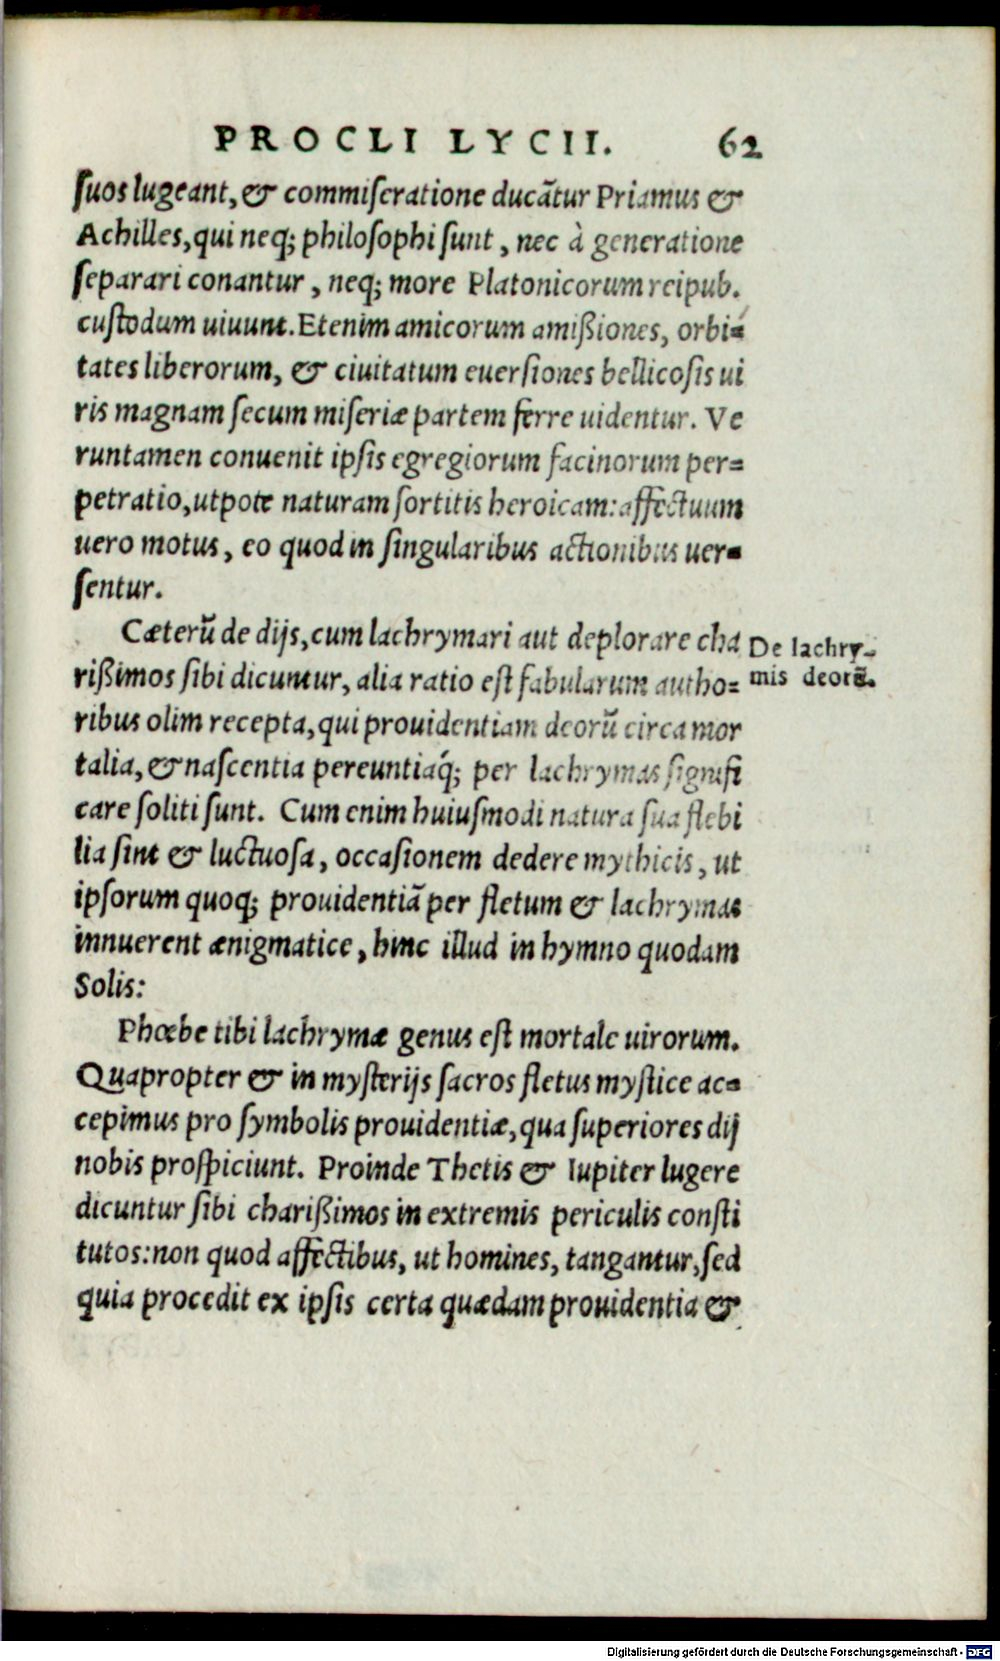 PROCLI LYCII. 62
suos lugeant, & commiseratione ducãtur Priamus &
Achilles, qui neq; philosophi sunt, nec à generatione
separari conantur, neq; more Platonicorum reipub.
custodum uiuunt. Etenim amicorum amißiones, orbi-
tates liberorum, & ciuitatum euersiones bellicosis ui
ris magnam secum miseriæ partem ferre uidentur. Ve
runtamen conuenit ipsis egregiorum facinorum per=
petratio, utpote naturam sortitis heroicam: affectuum
uero motus, eo quod in singularibus actionibus uer-
sentur.
Cæterũ de dijs, cum lachrymari aut deplorare cha
De lachry-
rißimos sibi dicuntur, alia ratio est fabularum autho=
mis deorũ.
ribus olim recepta, qui prouidentiam deorũ circa mor
talia, & nascentia pereuntiaq́; per lachrymas signifi
care soliti sunt. Cum enim huiusmodi natura sua flebi
lia sint & luctuosa, occasionem dedere mythicis, ut
ipsorum quoq; prouidentiã per fletum & lachrymas
innuerent ænigmatice, hinc illud in hymno quodam
Solis:
Phœbe tibi lachrymæ genus est mortale uirorum.
Quapropter & in mysterijs sacros fletus mystice ac=
cepimus pro symbolis prouidentiæ, qua superiores dij
nobis prospiciunt. Proinde Thetis & Iupiter lugere
dicuntur sibi charißimos in extremis periculis consti
tutos: non quod affectibus, ut homines, tangantur, sed
quia procedit ex ipsis certa quædam prouidentia &
Digitalisierung gefördert durch die Deutsche Forschungsgemeinschaft - DFG